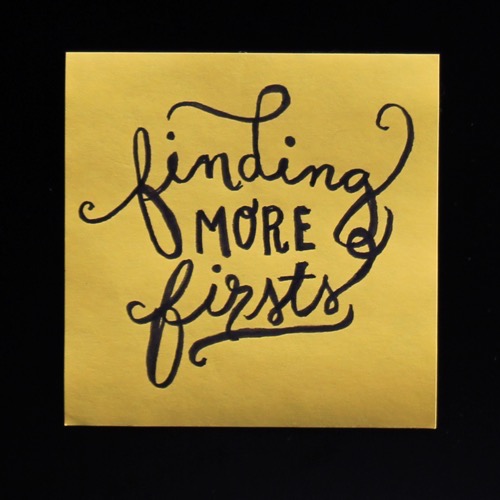 finding
MORE
firsts